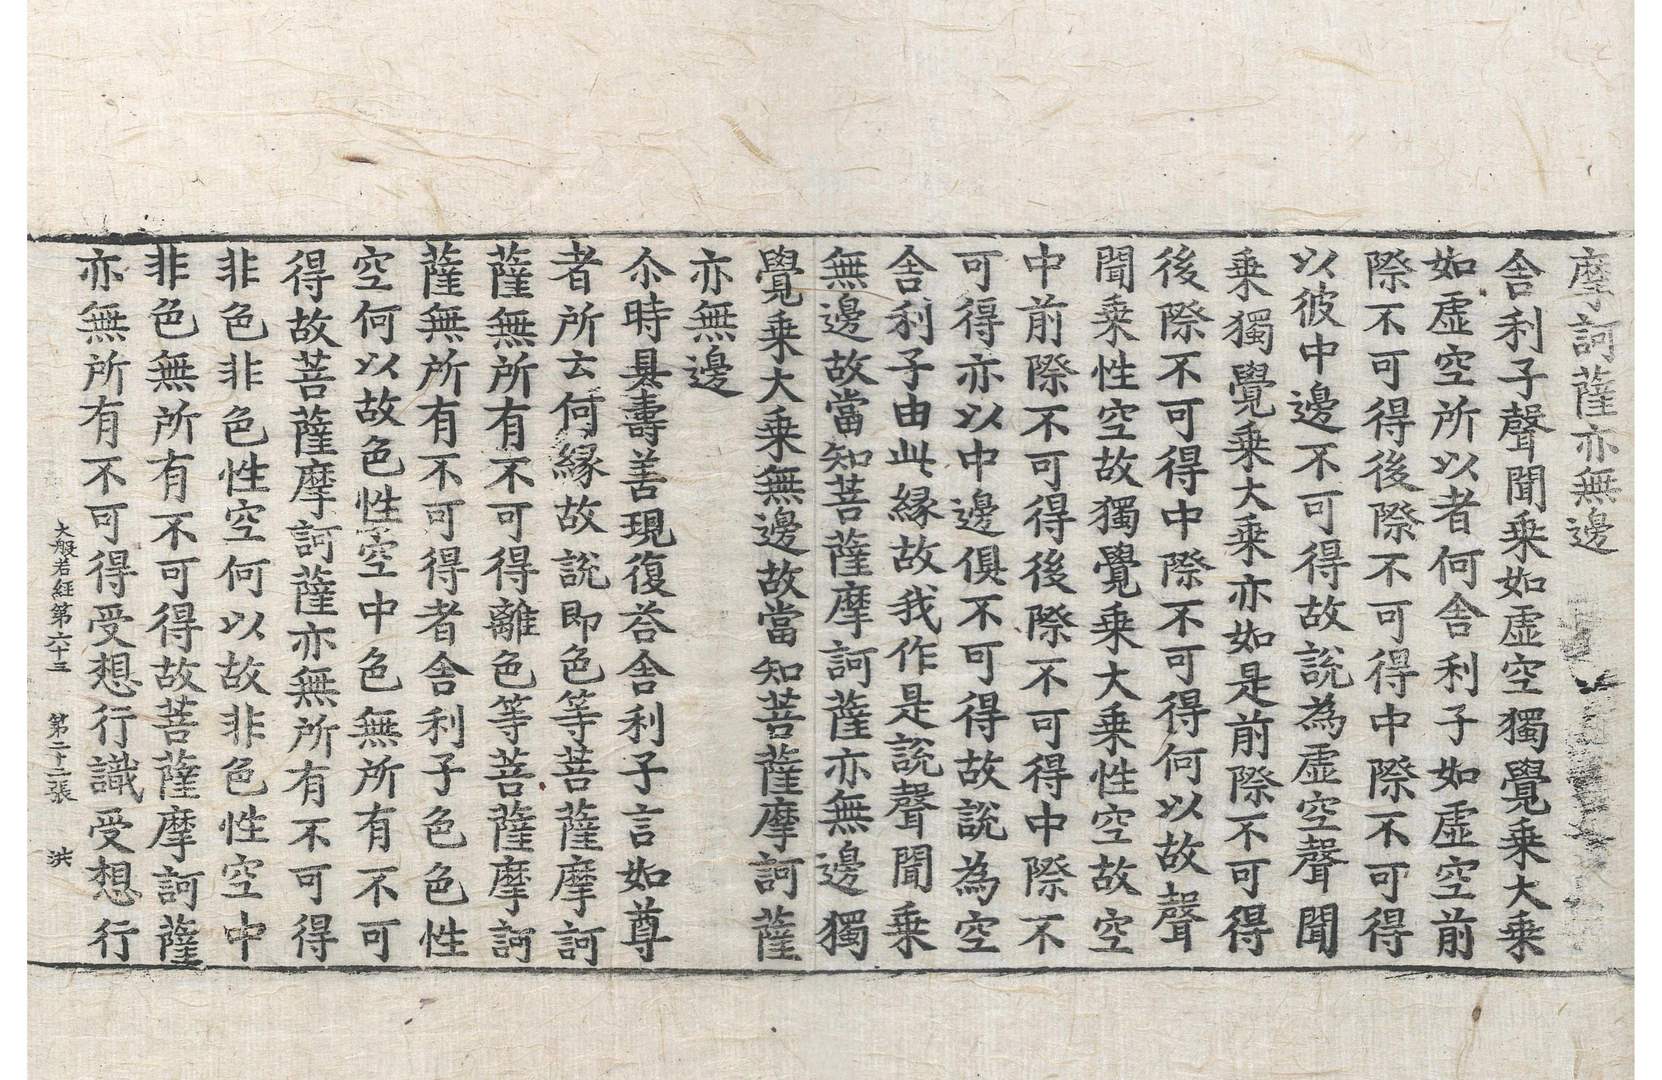 摩訶薩亦無邊
舍利子聲聞乗如虛空獨覺乗大乗
如虛空所以者何舍利子如虛空前
際不可得後際不可得中際不可得
以彼中邊不可得故說為虛空聲聞
乗獨覺乗大乗亦如是前際不可得
後際不可得中際不可得何以故聲
聞乗性空故獨覺乗大乗性空故空
中前際不可得後際不可得中際不
可得亦以中邊俱不可得故說為空
舍利子由此縁故我作是說聲聞乗
無邊故當知菩薩摩訶薩亦無邊獨
覺乗大乗無邊故當知菩薩摩訶薩
亦無邊
尒時具壽善現復荅舍利子言如尊
者所云何縁故說即色等菩薩摩訶
薩無所有不可得離色等菩薩摩訶
薩無所有不可得者舍利子色色性
空何以故色性空中色無所有不可
得故菩薩摩訶薩亦無所有不可得
非色非色性空何以故非色性空中
非色無所有不可得故菩薩摩訶薩
亦無所有不可得受想行識受想行
大般若経第六十三 第二十二張 洪